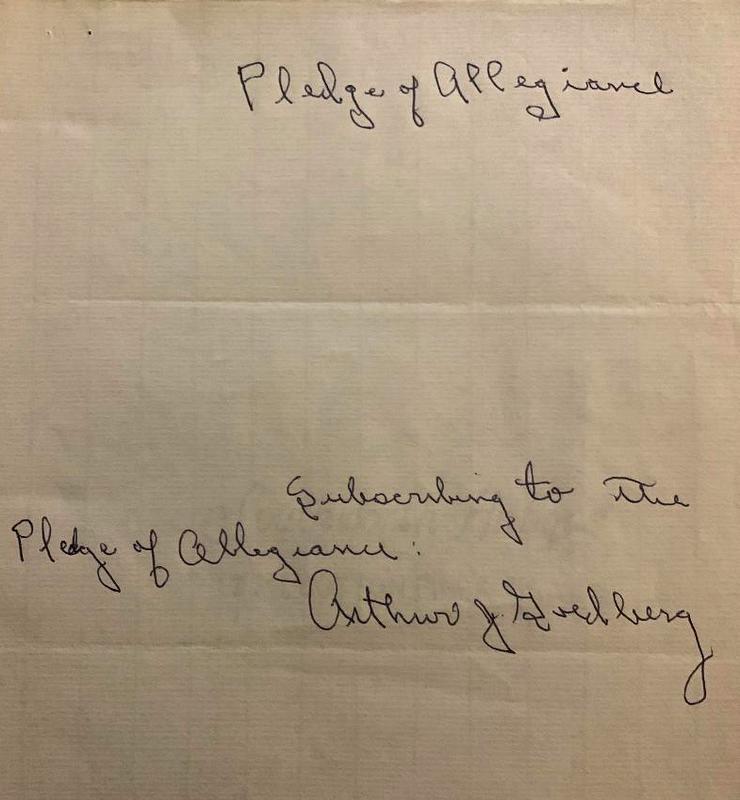 Pledge of Allegiance
Subscribing to the
Pledge of Allegiance:
Arthur J. Goldberg